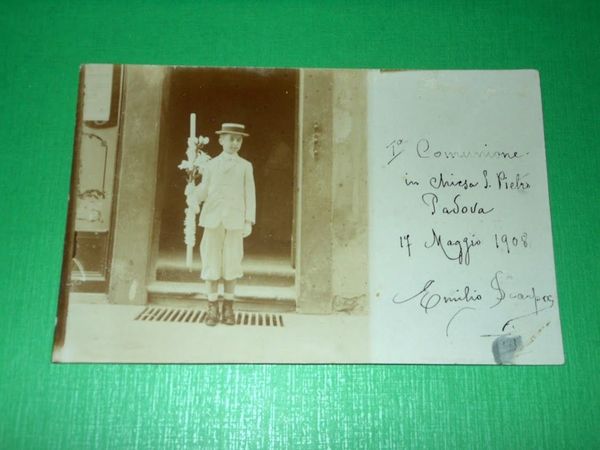 Iª Comunione
in chiesa S. Pietro
Padova
17 Maggio 1908
Emilio Scarpa